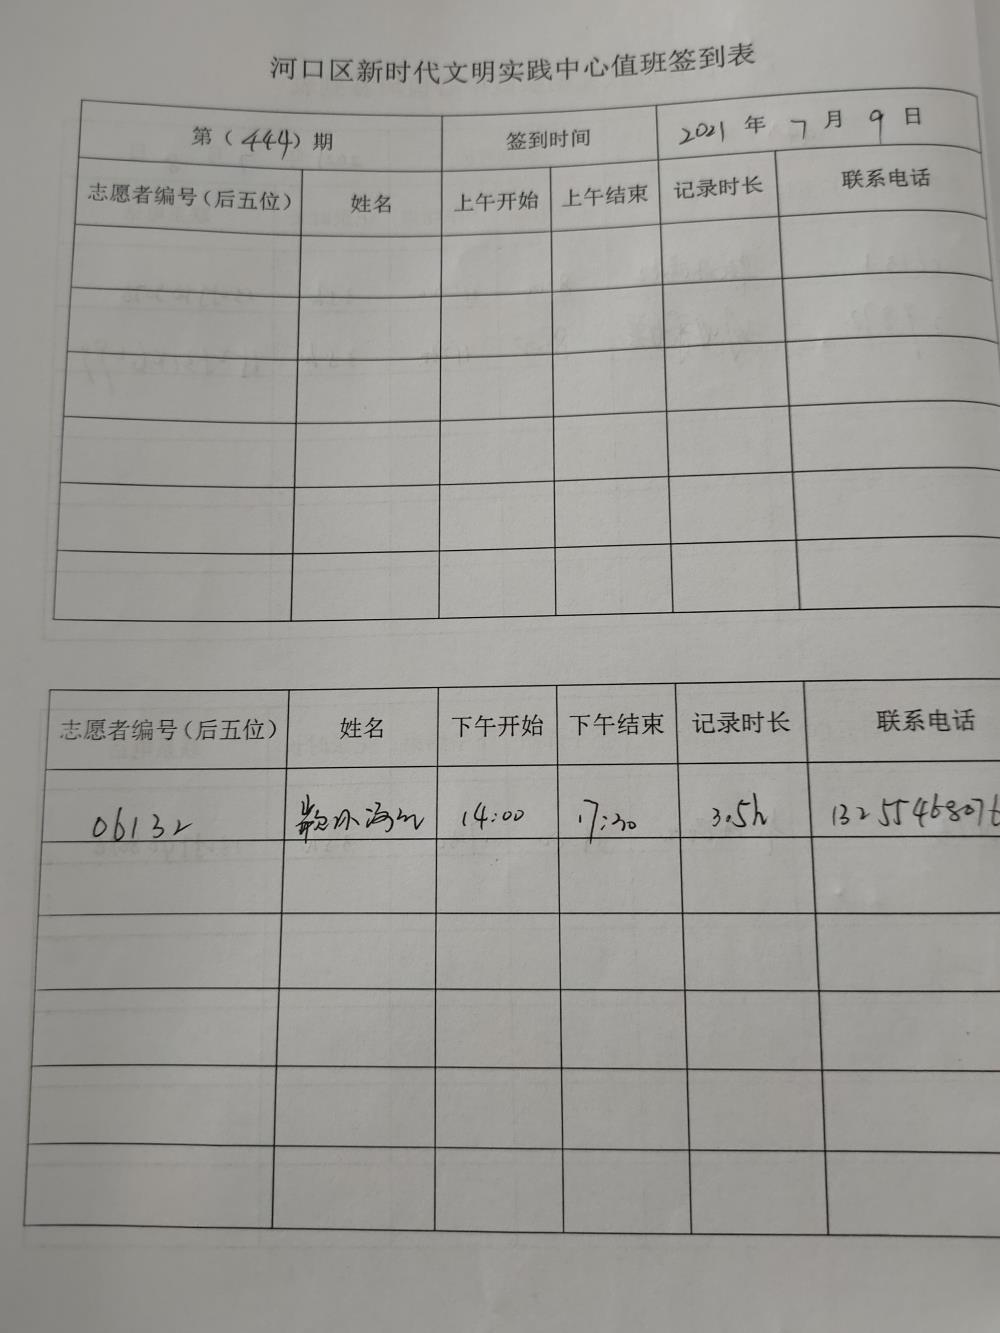 河口区新时代文明实践中心值班签到表
第（444）期 签到时间 2021 年 7 月 9 日
志愿者编号（后五位） 姓名 上午开始 上午结束 记录时长 联系电话
志愿者编号（后五位） 姓名 下午开始 下午结束 记录时长 联系电话
06132 14:00 17:30 3.5h 13255468076